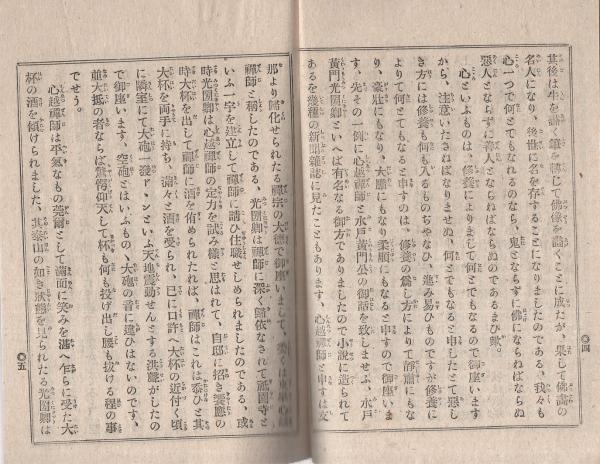 四
其後は牛を畫く筆を轉じて佛像を畫くことに成たが、果して佛畫の
名人になり、後世に名を存することになりましたのである、我々も
心一つで何とてもなれるのなら、鬼とならずに佛にならねばならぬ
惡人とならずに善人とならねばならぬのであるまひ歟。
心といふものは、修養によりまして何とでもなるので御座います
から、注意いたさねばなりませぬ、何とでもなると申したとて惡し
き方には修養も何も入るものぢやなひ、進み易ひものですが修養に
よりて何とでもなると申すのは、修養の爲し方によりて靜肅にもな
り、豪壯にもなり、大膽にもなり柔順にもなると申すので御座いま
す、先その一例に心越禪師と水戸黄門公の御話を致しませふ、水戸
黄門光圀卿といへば有名なる御方でありましたので小説に造られて
あるを幾種の新聞雜誌に見たこともあります、心越禪師と申すは支
那より歸化せられたる禪宗の大德で御座いまして、
禪師と稱したのである、光圀卿は禪師に深く歸依なされて祇園寺と
いふ一宇を建立して禪師に請ひ住職せしめられましたのである、或
時光圀卿は心越禪師の定力を試み樣と思はれて、自邸に招き饗應の
時大杯を出して禪師に酒を侑められたれば、禪師はこれは忝ひと其
大杯を兩手に持ち、滿々と酒を受られ、巳に口許へ大杯の近付く頃
に隣室にて大砲一發ドヽンといふ天地震動せんとする洪聲がしたの
で御座います、空砲とはいふもの、大砲の音に違ひはないのです、
並大抵の者ならば驚愕仰天して杯も何も投げ出し腰も拔ける程の事
でせう。
心越禪師は平氣なもの莞爾として滿面に笑みを湛へ乍らに受た大
杯の酒を傾けられました、其泰山の如き狀態を見られたる光圀卿は
五